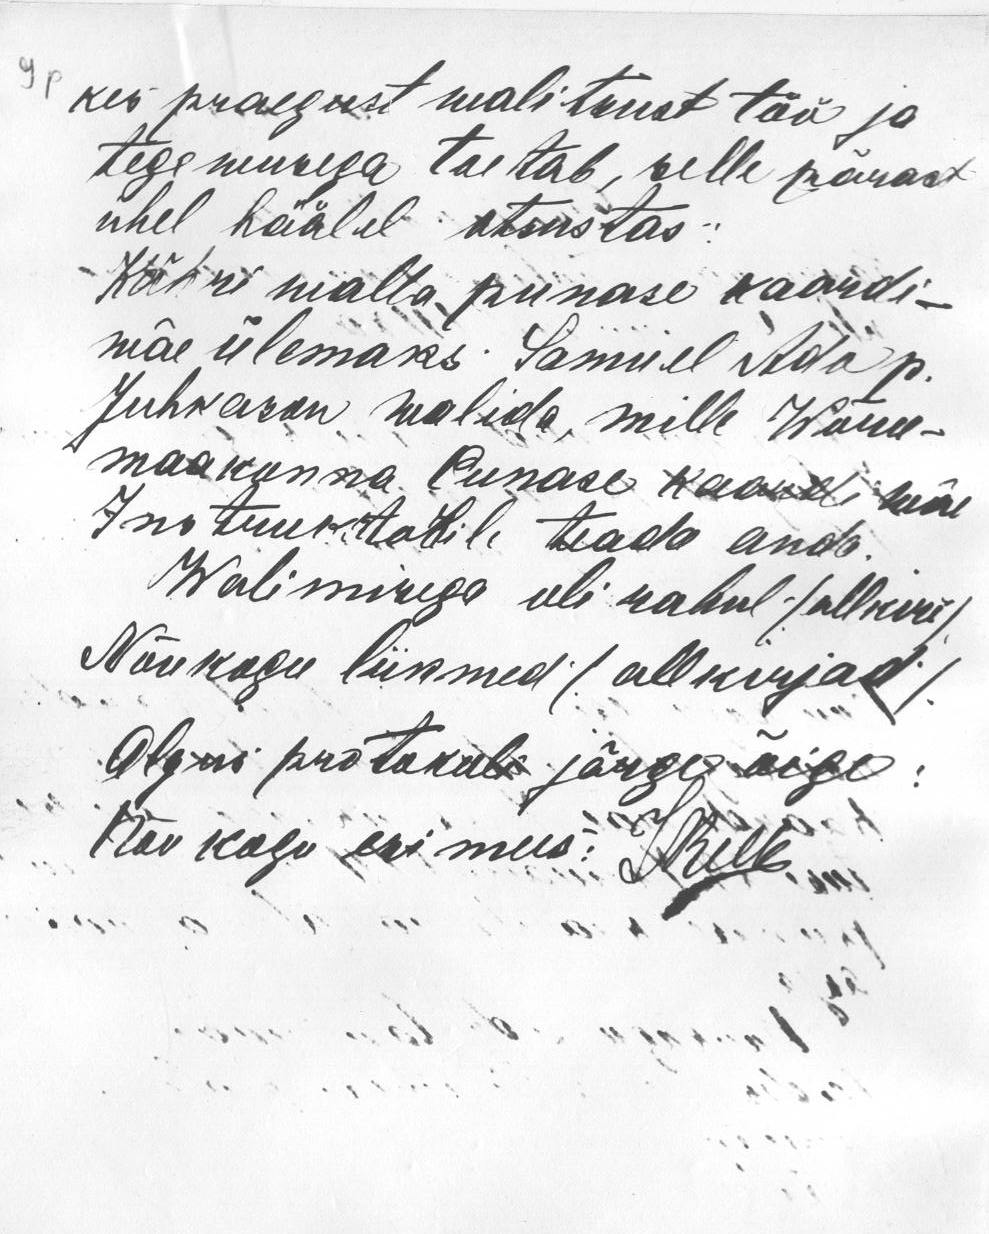 9 p
kes praegust walitsust töö ja
tegewusega toetab, selle pärast
ühel häälel otsustas:
Kähri walla punase kaardi-
wäe ülemaks Samuel Ado p.
Juhkason walida, mille Wõru-
maakonna Punase kaardi wäe
Instruktorile teada anda.
Walimisega oli rahul /allkiri/
Nõukogu liikmed /allkirjad/
Algus protokoll järge õige:
Nõukogu esimees: